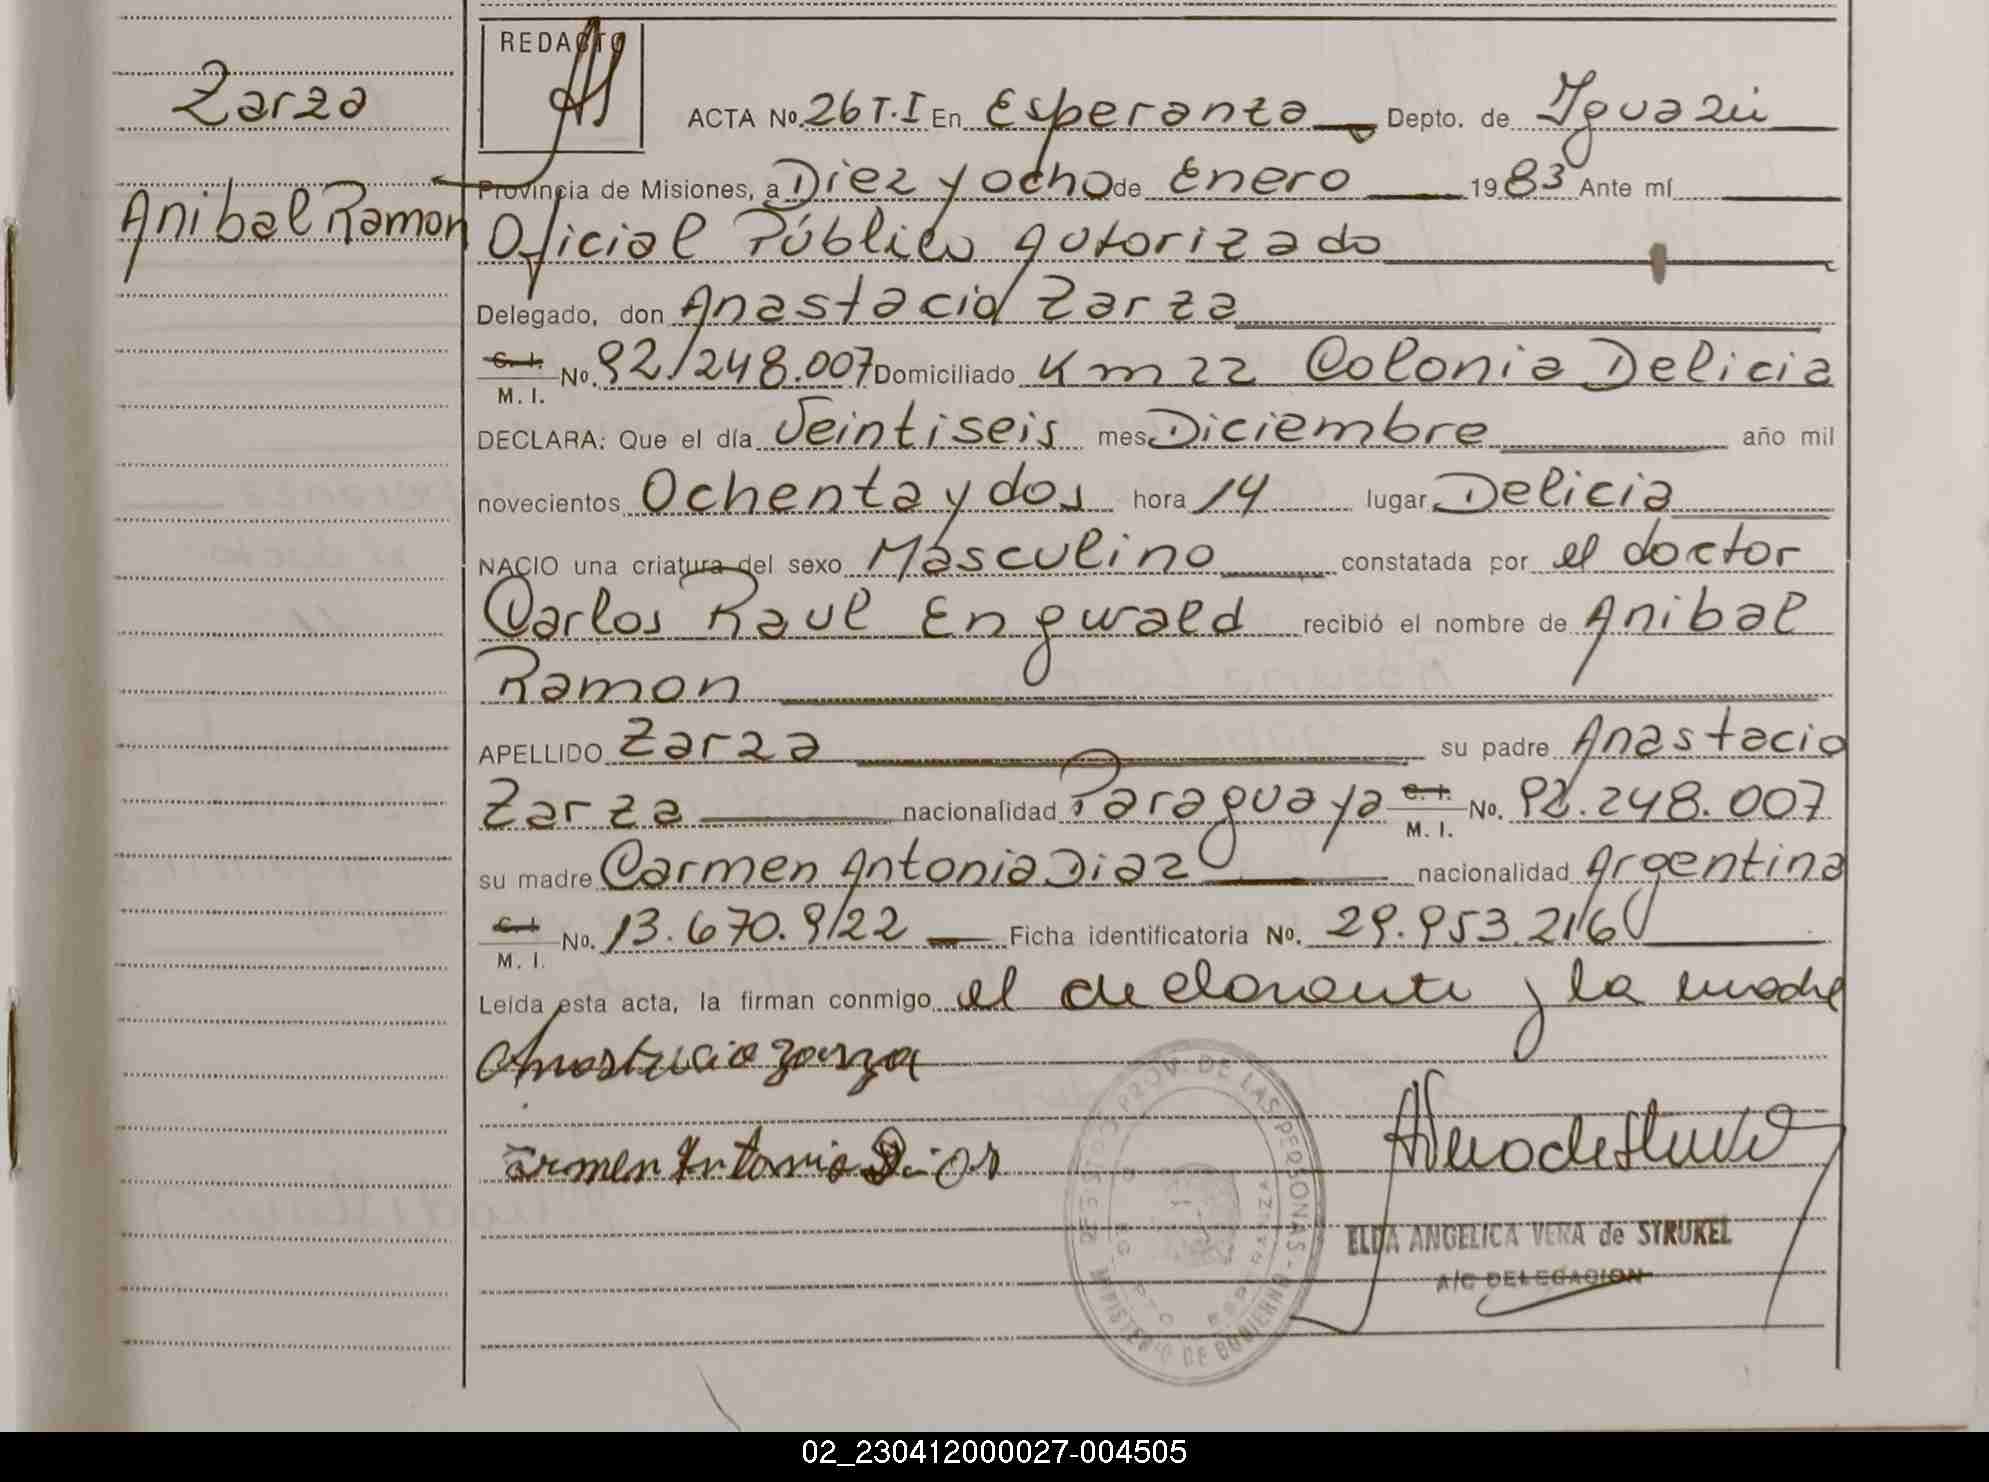 Zarza
Anibal Ramon
REDACTO
ACTA No. 26 T.I En Esperanza Depto. de Iguazú
Provincia de Misiones, a Diez y ocho de Enero 1983 Ante mí
Oficial Público Autorizado
Delegado, don Anastacio Zarza
C. I. M. I. No. 92.248.007 Domiciliado Km 22 Colonia Delicia
DECLARA: Que el día Veintiseis mes Diciembre año mil
novecientos Ochenta y dos hora 14 lugar Delicia
NACIO una criatura del sexo Masculino constatada por el doctor
Carlos Raul Engwald recibió el nombre de Anibal
Ramon
APELLIDO Zarza su padre Anastacio
Zarza nacionalidad Paraguaya C. I. M. I. No. 92.248.007
su madre Carmen Antonia Diaz nacionalidad Argentina
C. I. M. I. No. 13.670.922 Ficha identificatoria No. 29.953.216
Leída esta acta, la firman conmigo el declarante y la madre
Anastacio Zarza
Carmen Antonia Diaz
REGISTRO PROV. DE LAS PERSONAS - MINISTERIO DE GOBIERNO
ESPERANZA
ELDA ANGELICA VERA de STRUKEL
A/C DELEGACION
02_230412000027-004505